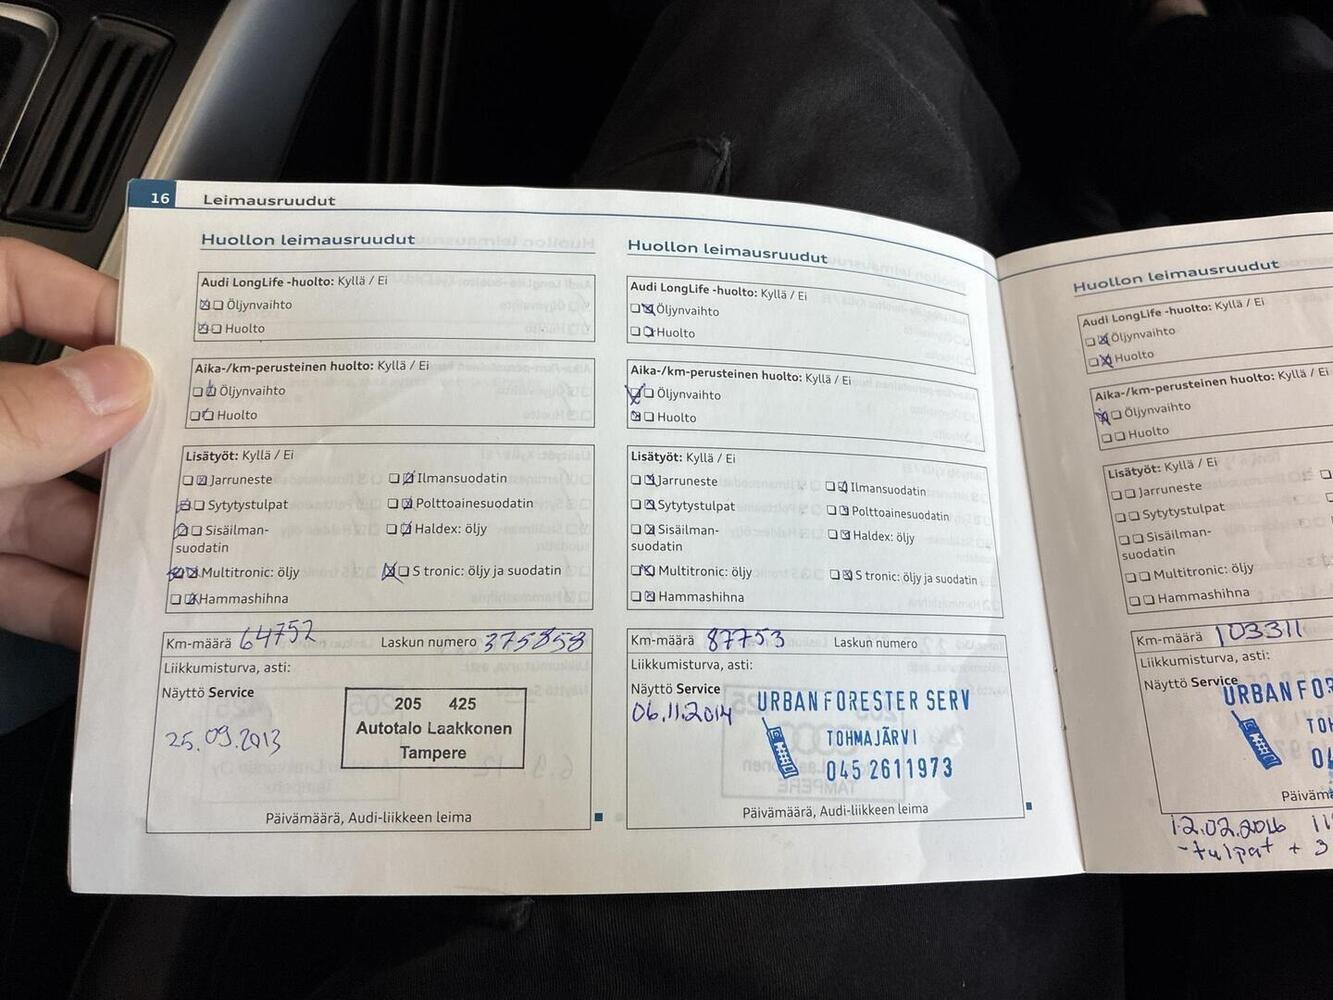 16 Leimausruudut
Huollon leimausruudut
Audi LongLife -huolto: Kyllä / Ei
Öljynvaihto
Huolto
Aika-/km-perusteinen huolto: Kyllä / Ei
Öljynvaihto
Huolto
Lisätyöt: Kyllä / Ei
Jarruneste
Ilmansuodatin
Sytytystulpat
Polttoainesuodatin
Sisäilman-
suodatin
Haldex: öljy
Multitronic: öljy
S tronic: öljy ja suodatin
Hammashihna
Km-määrä 64752 Laskun numero 375858
Liikkumisturva, asti:
Näyttö Service
25.09.2013
205 425
Autotalo Laakkonen
Tampere
Päivämäärä, Audi-liikkeen leima
Huollon leimausruudut
Audi LongLife -huolto: Kyllä / Ei
Öljynvaihto
Huolto
Aika-/km-perusteinen huolto: Kyllä / Ei
Öljynvaihto
Huolto
Lisätyöt: Kyllä / Ei
Jarruneste
Ilmansuodatin
Sytytystulpat
Polttoainesuodatin
Sisäilman-
suodatin
Haldex: öljy
Multitronic: öljy
S tronic: öljy ja suodatin
Hammashihna
Km-määrä 87753 Laskun numero
Liikkumisturva, asti:
Näyttö Service
06.11.2014
URBAN FORESTER SERV
TOHMAJÄRVI
045 2611973
Päivämäärä, Audi-liikkeen leima
Huollon leimausruudut
Audi LongLife -huolto: Kyllä / Ei
Öljynvaihto
Huolto
Aika-/km-perusteinen huolto: Kyllä / Ei
Öljynvaihto
Huolto
Lisätyöt: Kyllä / Ei
Jarruneste
Sytytystulpat
Sisäilman-
suodatin
Multitronic: öljy
Hammashihna
Km-määrä 103311
Liikkumisturva, asti:
Näyttö Service
URBAN FOR
TOH
04
Päivämä
12.02.2016
-tulpat + 3